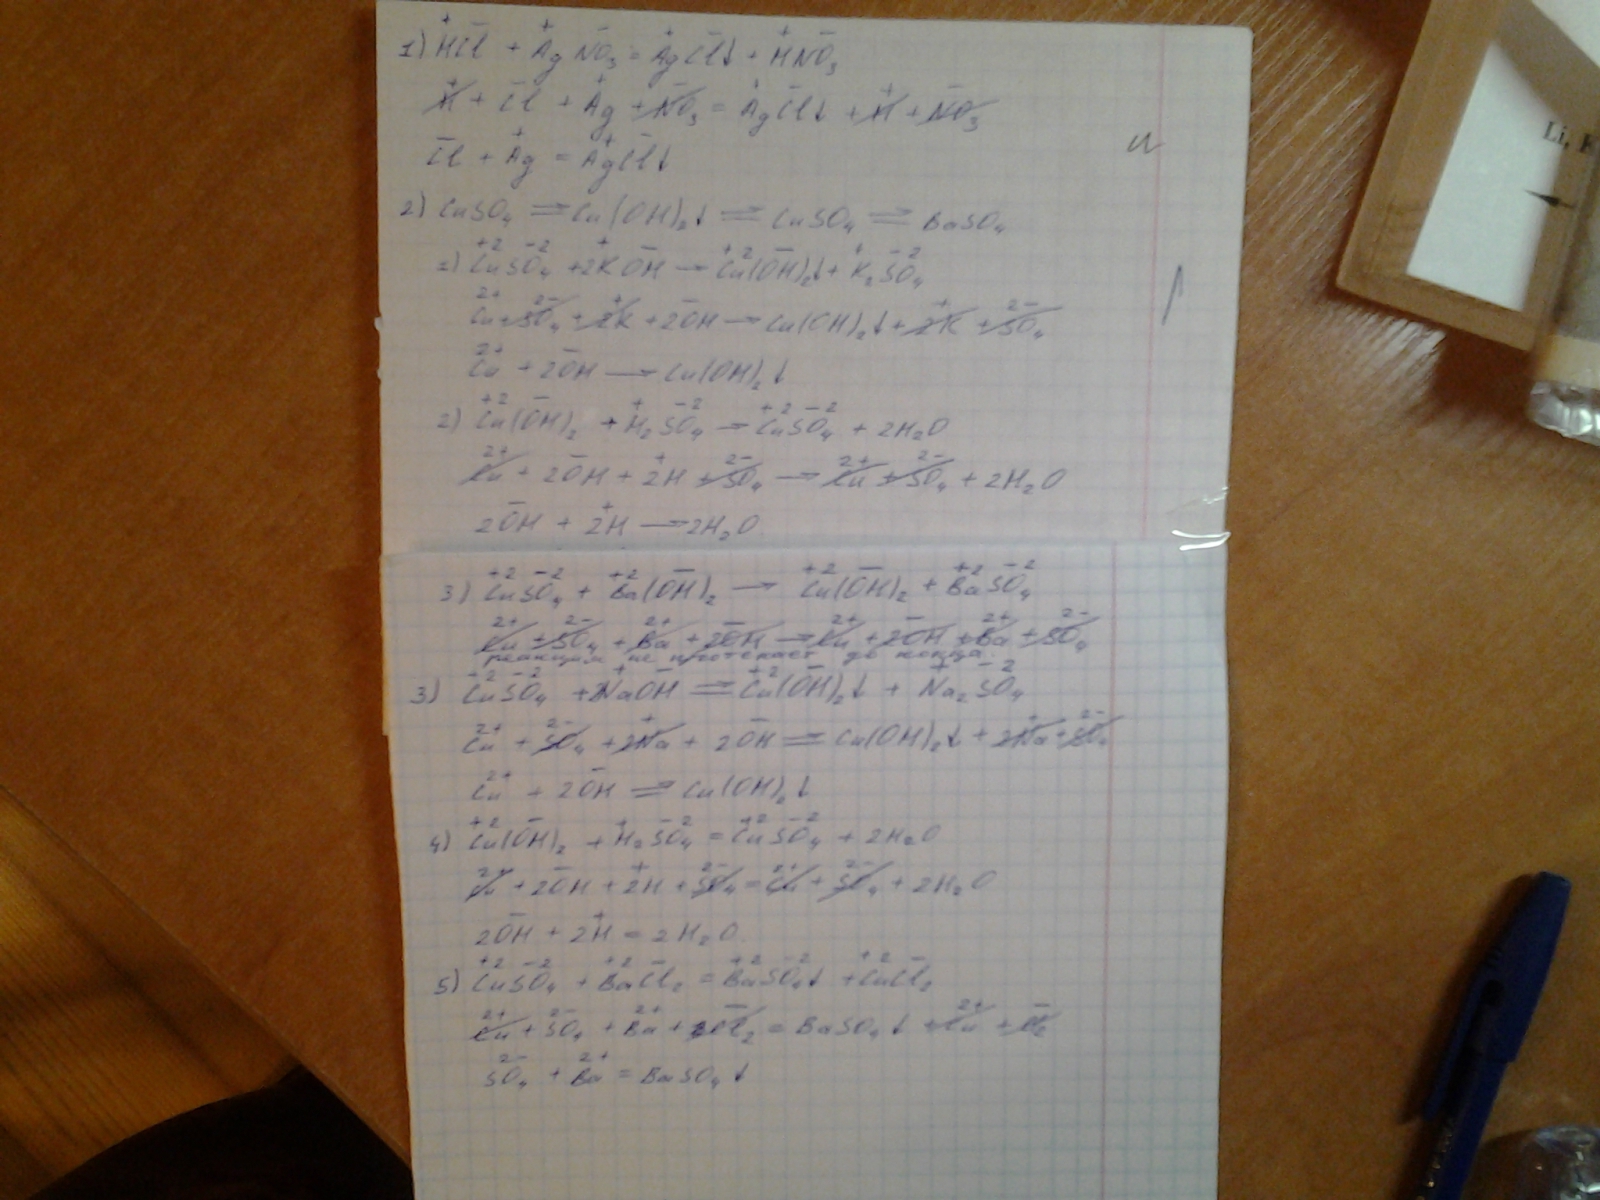 1) HCl + AgNO₃ = AgCl↓ + HNO₃
H⁺ + Cl⁻ + Ag⁺ + NO₃⁻ = AgCl↓ + H⁺ + NO₃⁻
Cl⁻ + Ag⁺ = AgCl↓
2) CuSO₄ ⇌ Cu(OH)₂↓ ⇌ CuSO₄ ⇌ BaSO₄
1) CuSO₄ + 2KOH → Cu(OH)₂↓ + K₂SO₄
Cu²⁺ + SO₄²⁻ + 2K⁺ + 2OH⁻ → Cu(OH)₂↓ + 2K⁺ + SO₄²⁻
Cu²⁺ + 2OH⁻ → Cu(OH)₂↓
2) Cu(OH)₂ + H₂SO₄ → CuSO₄ + 2H₂O
Cu²⁺ + 2OH⁻ + 2H⁺ + SO₄²⁻ → Cu²⁺ + SO₄²⁻ + 2H₂O
2OH⁻ + 2H⁺ → 2H₂O
3) CuSO₄ + Ba(OH)₂ → Cu(OH)₂ + BaSO₄
Cu²⁺ + SO₄²⁻ + Ba²⁺ + 2OH⁻ → Cu²⁺ + 2OH⁻ + Ba²⁺ + SO₄²⁻
реакция не протекает до конца.
3) CuSO₄ + 2NaOH ⇌ Cu(OH)₂↓ + Na₂SO₄
Cu²⁺ + SO₄²⁻ + 2Na⁺ + 2OH⁻ ⇌ Cu(OH)₂↓ + 2Na⁺ + SO₄²⁻
Cu²⁺ + 2OH⁻ ⇌ Cu(OH)₂↓
4) Cu(OH)₂ + H₂SO₄ = CuSO₄ + 2H₂O
Cu²⁺ + 2OH⁻ + 2H⁺ + SO₄²⁻ = Cu²⁺ + SO₄²⁻ + 2H₂O
2OH⁻ + 2H⁺ = 2H₂O
5) CuSO₄ + BaCl₂ = BaSO₄↓ + CuCl₂
Cu²⁺ + SO₄²⁻ + Ba²⁺ + 2Cl₂⁻ = BaSO₄↓ + Cu²⁺ + Cl₂⁻
SO₄²⁻ + Ba²⁺ = BaSO₄↓
Li,